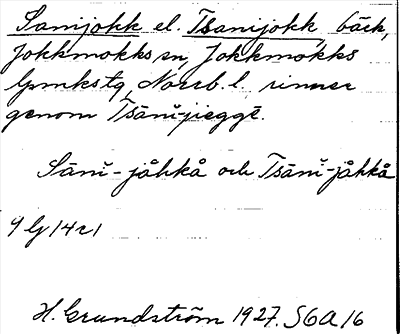 Sanijokk el. Tsanijokk, bäck,
Jokkmokks sn, Jokkmokks
lpmkstg, Norrb. l. rinner
genom Tsāni-jieggē.
Sāni-jåhkå och Tsāni-jåhkå
9 Lj 14 c 1
H. Grundström 1927. S6A16